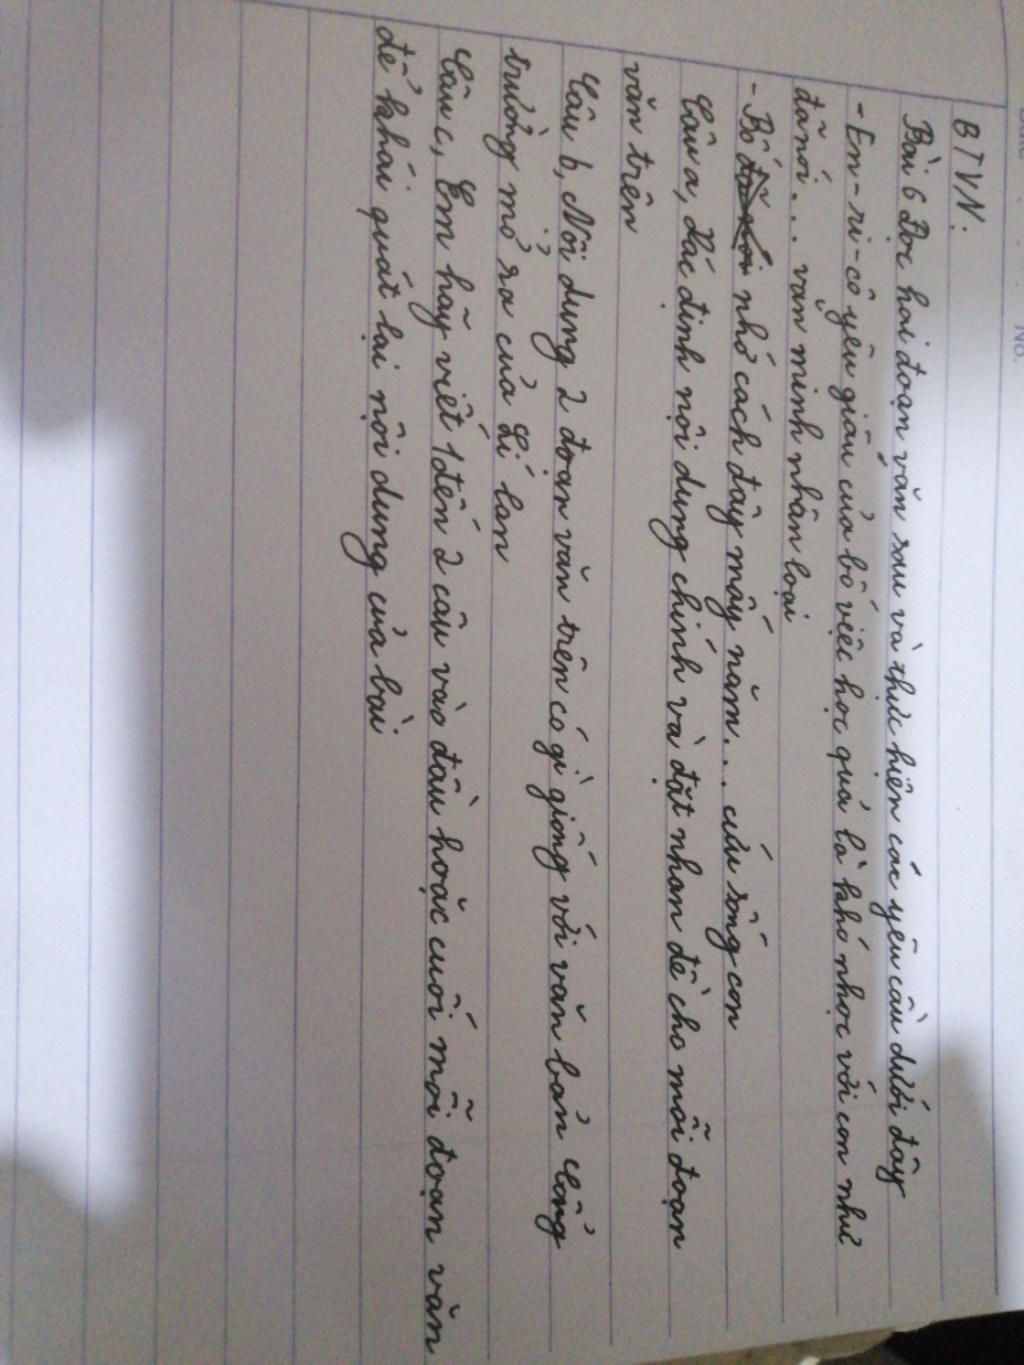 No.
BTVN.
Bài 6 Đọc hai đoạn văn sau và thực hiện các yêu cầu dưới đây
- En-ri-cô yêu giấu của bố việc học quả là khó nhọc với con như
đã nói... văn minh nhân loại
- Bố nhớ cách đây mấy năm... cứu sống con
Câu a, Xác định nội dung chính và đặt nhan đề cho mỗi đoạn
văn trên
Câu b, Nội dung 2 đoạn văn trên có gì giống với văn bản Cổng
trường mở ra của Lí Lan
Câu c, Em hãy viết 1 đến 2 câu vào đầu hoặc cuối mỗi đoạn văn
để khái quát lại nội dung của bài